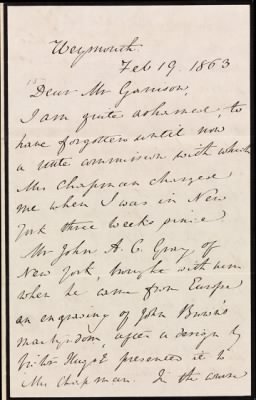 Weymouth
Feb 19. 1863
Dear Mr Garrison,
I am quite ashamed, to
have forgotten until now
a commission with which
Mrs Chapman charged
me when I was in New
York three weeks since
Mr John A. C. Gray, of
New York, brought with him
when he came from Europe
an engraving of John Brown's
martyrdom, after a design by
Victor Hugo & presented it to
Mrs Chapman. In the course